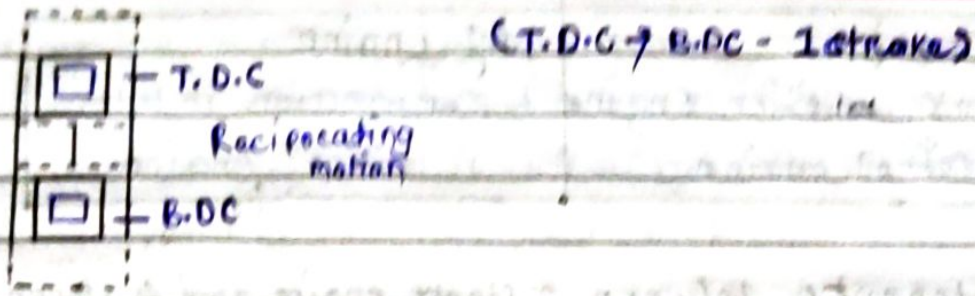 (T.D.C → B.DC - 1 stroke)
T.D.C
Reciprocating
motion
B.DC